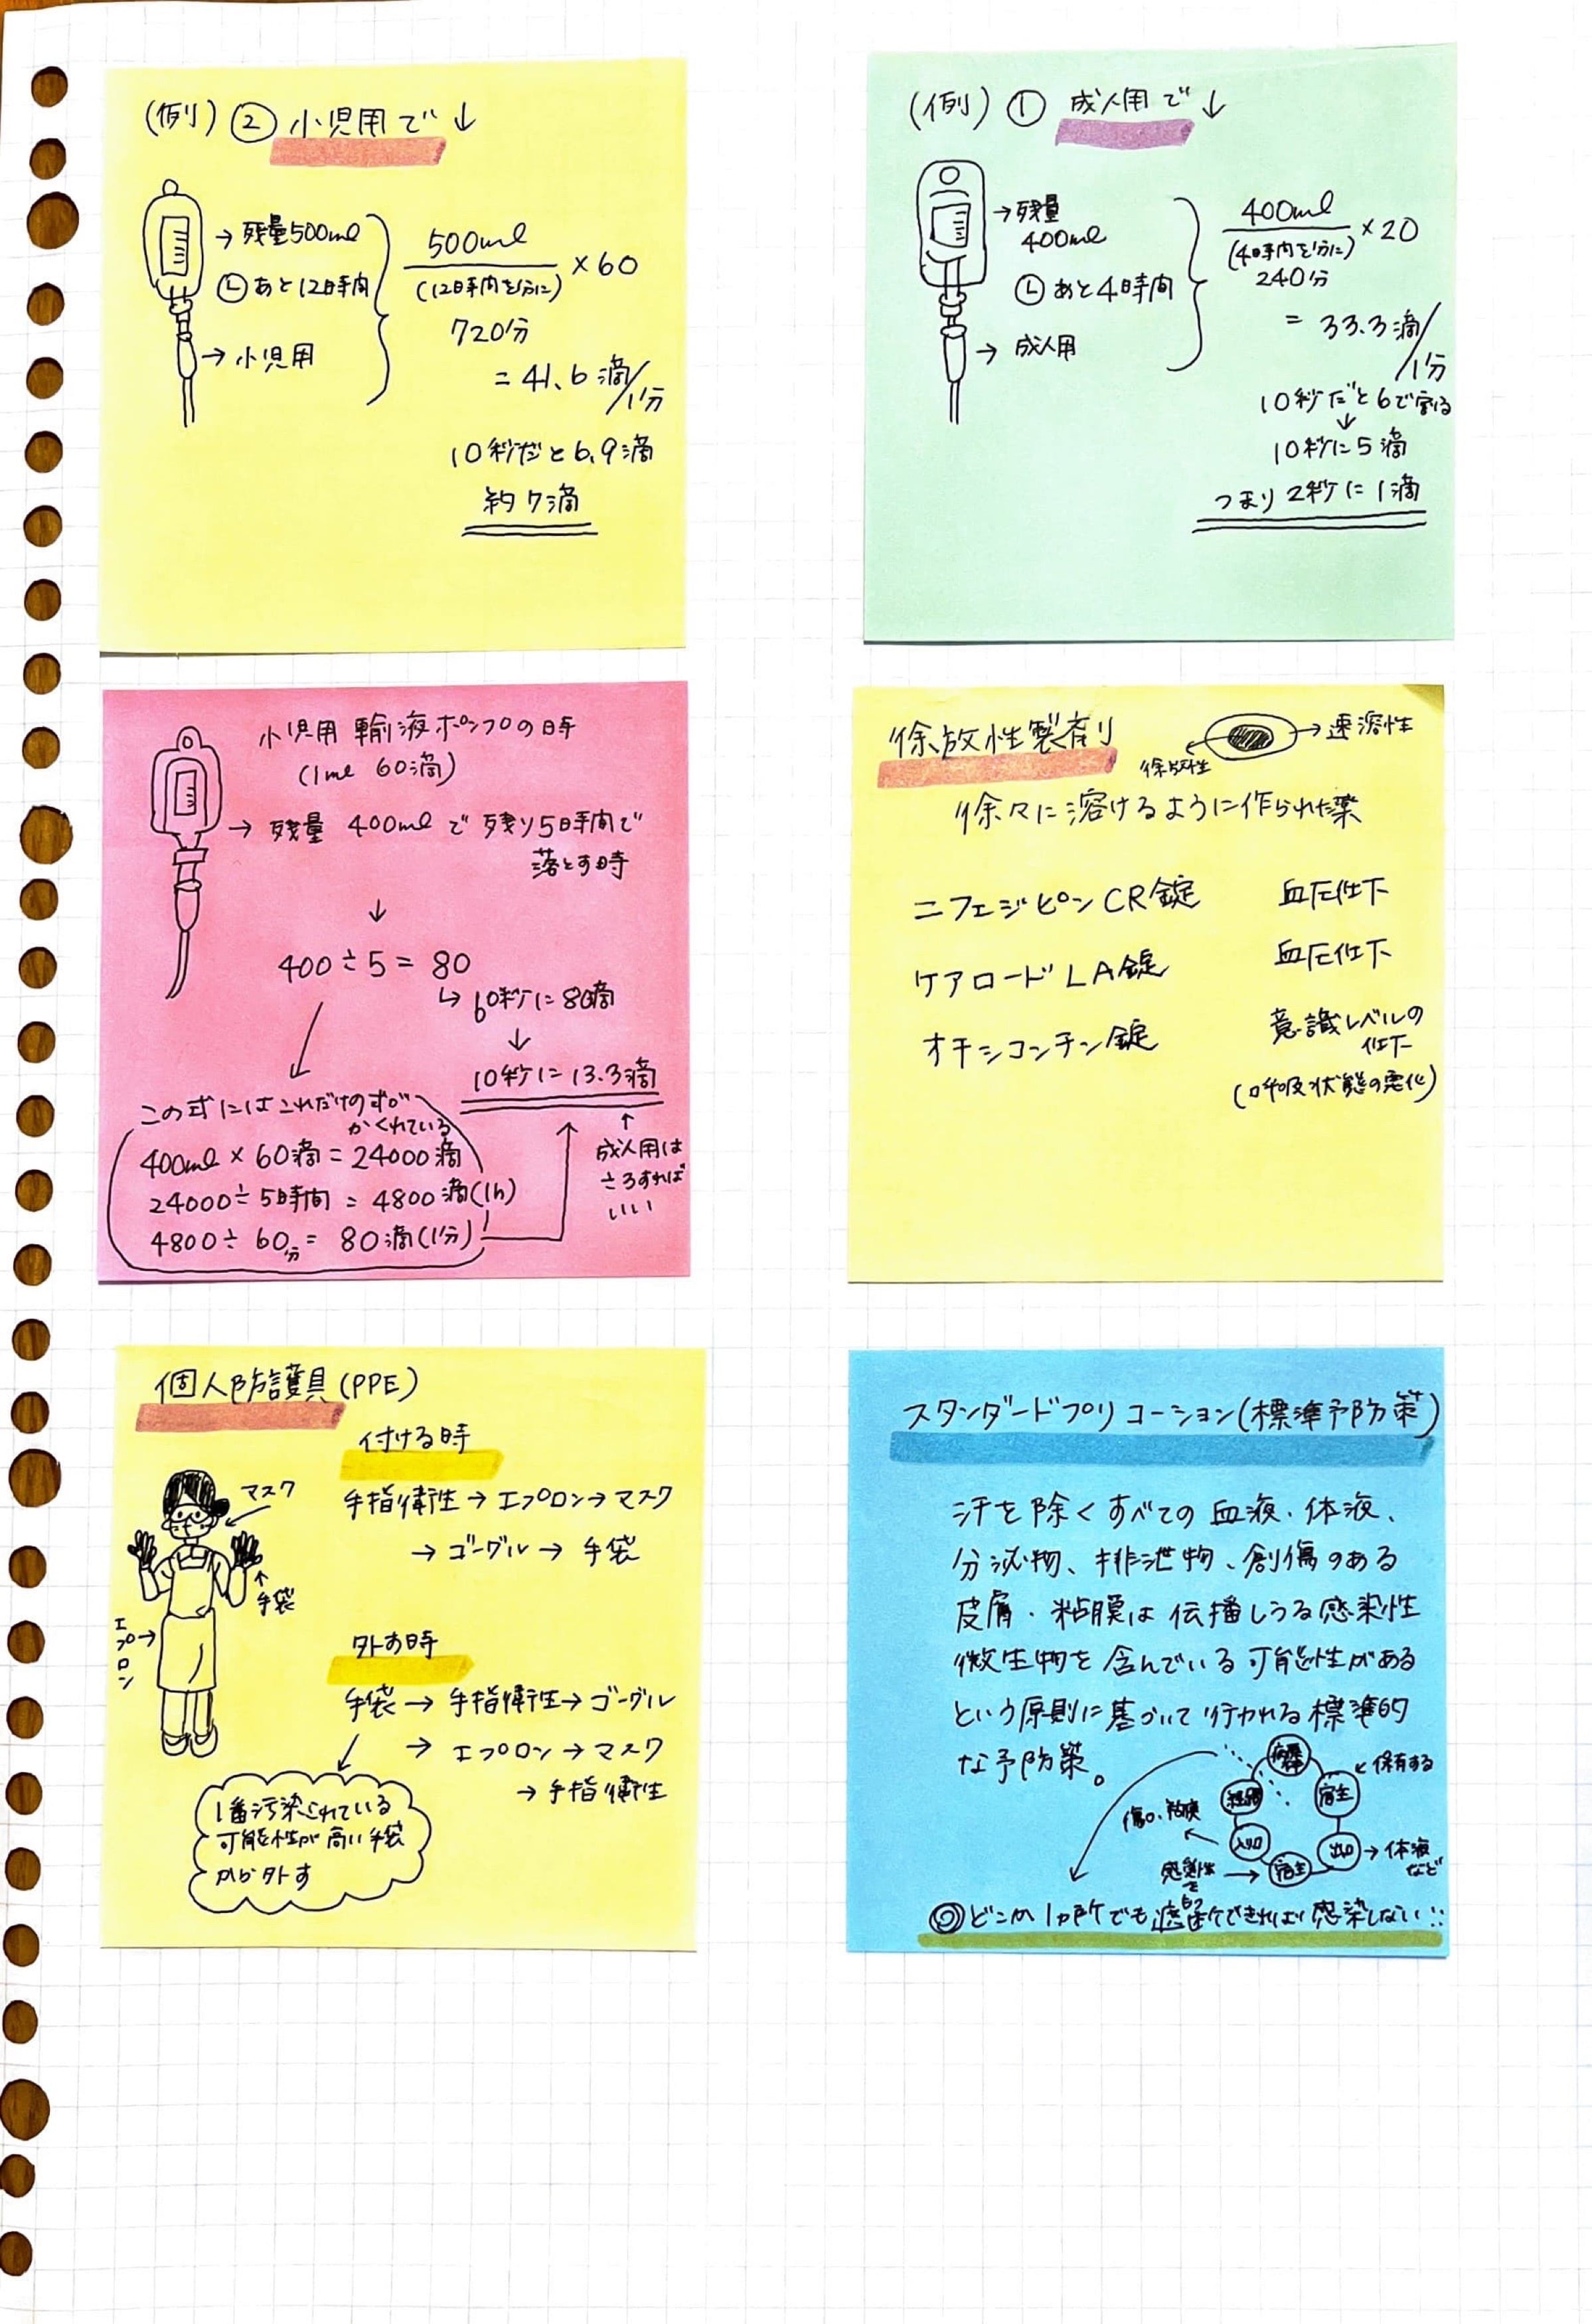 (例) ② 小児用で↓
→ 残量500ml
あと12時間
→ 小児用
500ml
(12時間を分に)
720分
×60
= 41.6 滴/1分
10秒だと6.9滴
約7滴
(例) ① 成人用で↓
→残量
400ml
あと4時間
→ 成人用
400ml
(4時間を分に)
240分
×20
= 33.3滴/1分
10秒だと6で割る
↓
10秒に5滴
つまり2秒に1滴
小児用 輸液ポンプの時
(1ml 60滴)
→ 残量 400mlで残り5時間で
落とす時
↓
400÷5= 80
↳ 60秒に80滴
↓
10秒に13.3滴
↑
成人用は
さろすれば
いい
この式にはこれだけの式が
かくれている
400ml × 60滴 = 24000滴
24000÷5時間 = 4800滴(1h)
4800÷60分= 80滴(1分)
徐放性製剤
徐放性
→速溶性
徐々に溶けるように作られた薬
ニフェジピンCR錠 血圧低下
ケアロードLA錠 血圧低下
オキシコンチン錠 意識レベルの
低下
(呼吸状態の悪化)
個人防護具(PPE)
付ける時
手指衛生→エプロン→マスク
→ゴーグル→ 手袋
マスク
手袋
エプロン→
外す時
手袋→ 手指衛生→ゴーグル
→ エプロン→マスク
→手指衛生
1番汚染されている
可能性が高い手袋
から外す
スタンダードプリコーション(標準予防策)
汗を除くすべての血液・体液、
分泌物、排泄物、創傷のある
皮膚・粘膜は伝播しうる感染性
微生物を含んでいる可能性がある
という原則に基づいて行われる標準的
な予防策。
病原体
宿主
←保有する
出口
→体液
など
宿主
感染性を
もつ
入口
傷口、粘膜
経路
◎どこか1カ所でも遮断できれば感染しない!!